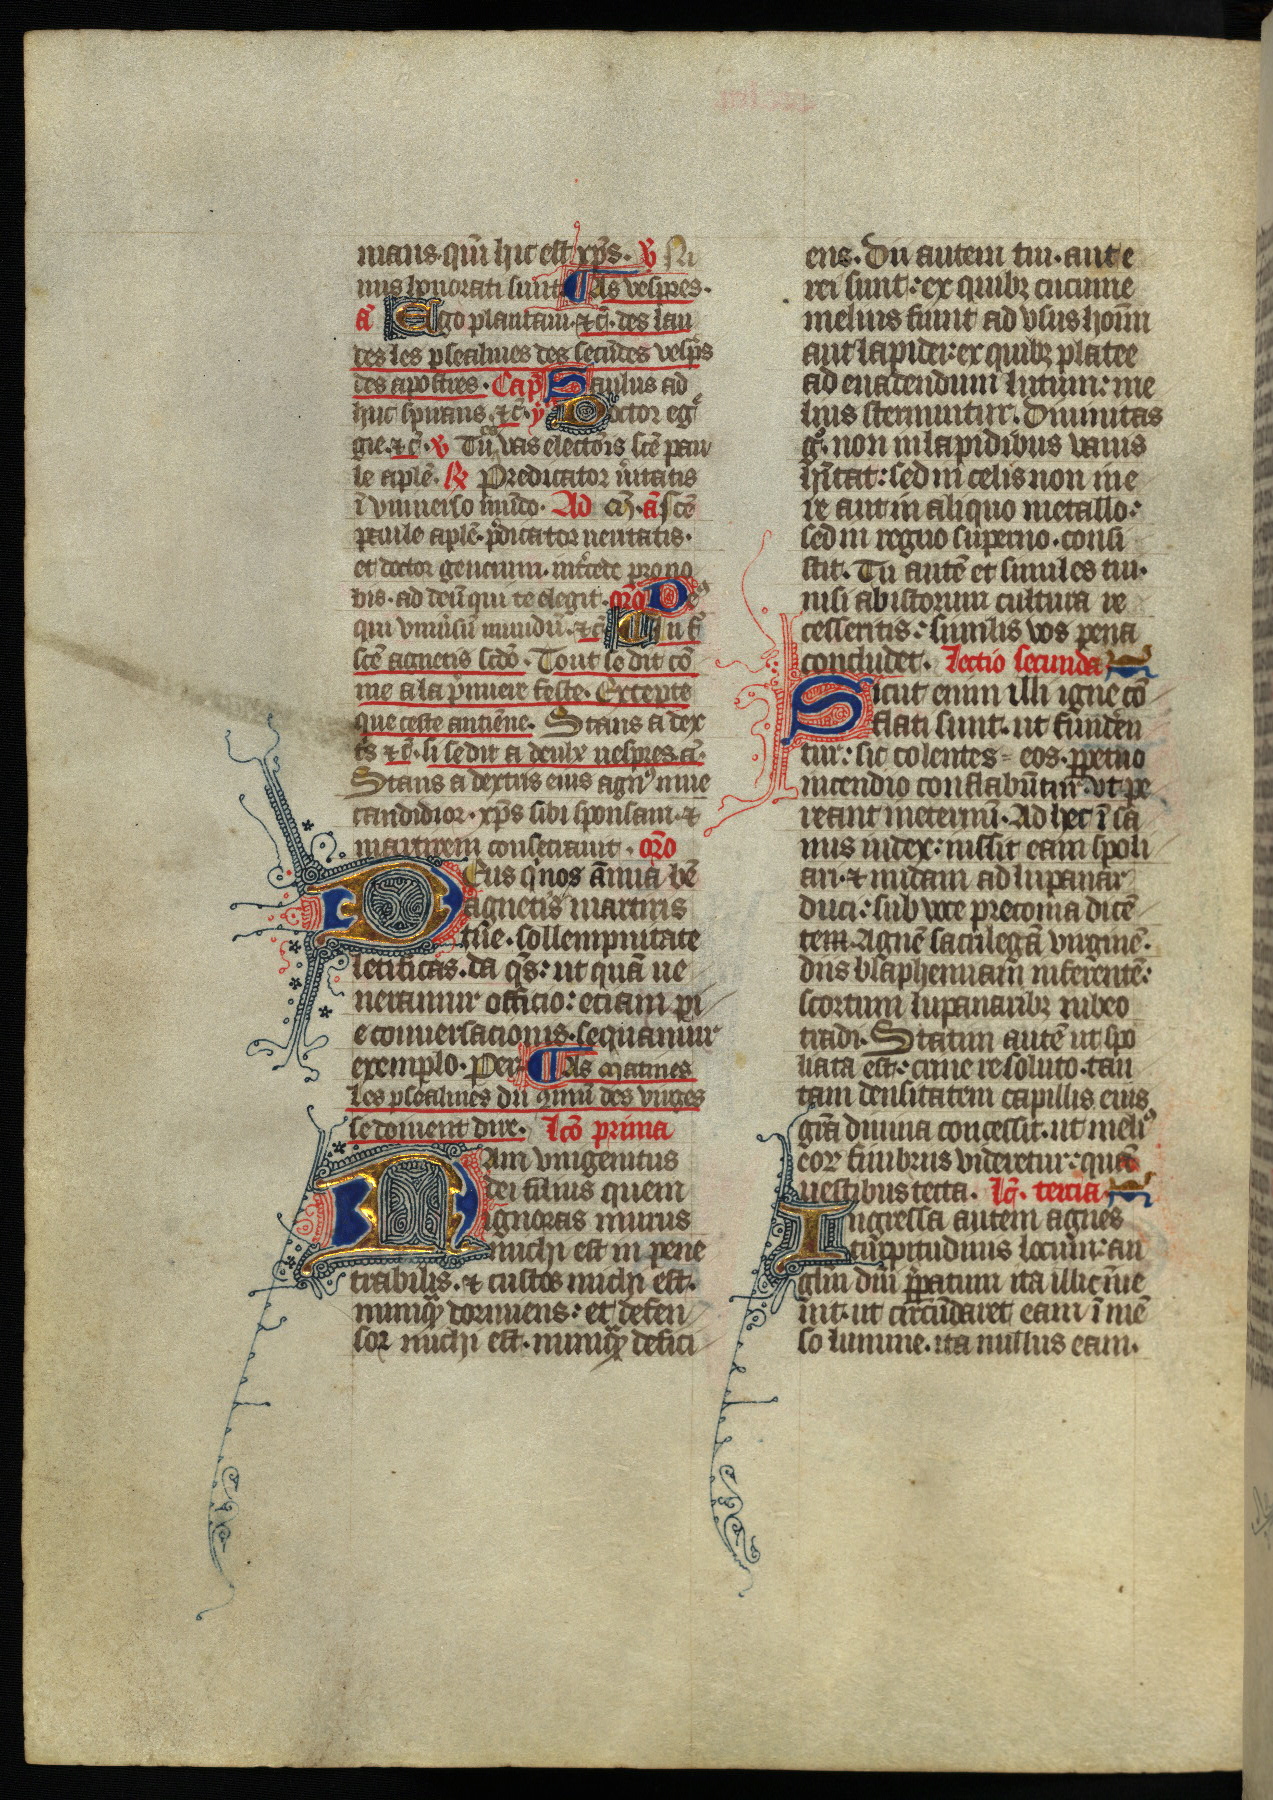 mans. qm̄ hic est xp̄s. v̄ Ni
mis honorati sunt As vespres.
a᷑ Ego plantaui. ⁊c̄. des lau
des les psealmes des secūdes vesp̄s
des apostres. Cap̄ Saulus ad
huc spirans. ⁊c̄. y̾ Doctor eg̾
gie. ⁊c̄. v̄ Tu vas electōis scē pau
le aplē. R̷ Predicator ūitatis
ī vniuerso mūdo. Ad M. a᷑ scē
paule aplē. p̄dicator ueritatis.
et doctor gencium. int̄cede pro no
bis. ad deū qui te elegit. or̄o Deꝰ
qui vniūsū mundū. ⁊c̄ En la f̄
scē agnetis scdō. Tout se dit cō
me a la p̄miere feste. Excepte
que ceste antiēne. Stans a dex
t̄s ⁊c̄. si se dit a deulx uespres. a᷑.
Stans a dextris eius agnꝰ niue
candidior. xp̄s sibi sponsam. ⁊
martirem consecrauit. or̄o
Deus q̄ nos ānua bē
agnetis martiris
tūe. sollempnitate
letificas. da q̄s: ut quā ue
neramur officio: eciam pi
e conuersacionis. sequamur
exemplo. Per. As matines
les psealmes du 9mū des virges
se doiuent dire. Lcō prima
Nam vnigenitus
dei filius quem
ignoras murus
michi est in pene
trabilis. ⁊ custos michi est.
nunqꝫ dormiens: et defen
sor michi est. nunqꝫ defici
ens. Dii autem tui. aut e
rei sunt: ex quibꝫ cucume
melius fiunt ad vsus hoīm
aut lapidei: ex quibꝫ platee
ad euadendum lutum: me
lius sternuntur. Diuinitas
g̊. non in lapidibus vanis
hītat: sed in celis non in e
re aut in aliquo metallo:
sed in regno superno. consi
stit. Tu autē et similes tui.
nisi ab istorum cultura re
cesseritis: similis vos pena
concludet. Lectio secunda
Sicut enim illi igne cō
flati sunt. ut funden
tur: sic colentes = eos. ꝑpetuo
incendio conflabūtur. ut pe
reant in eternū. Ad hec ī sa
nus iudex: iussit eam spoli
ari. ⁊ nudam ad lupanar
duci: sub voce preconia dicē
tem. Agnē sacrilegā virginē.
diis blasphemiam inferentē:
scortum lupanaribꝫ iubeo
tradi. Statim autē ut spo
liata est: crine resoluto. tan
tam densitatem capillis eius
grā diuina concessit. ut meliꝰ
eor fimbriis videretur: quā
uestibus tecta. Lc̄. tercia
Ingressa autem agnes
turpitudinis locum: an
glm dn̄i p̄paratum ita illic īue
nit. ut circūdaret eam ī mē
so lumine. ita nullus eam.